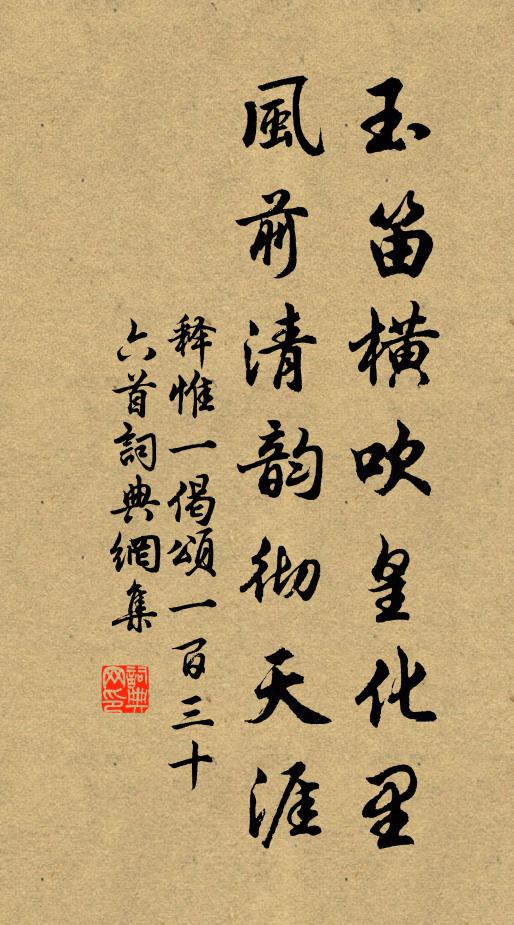 玉笛橫吹皇化里
風前清韵彻天涯
释惟一偈頌一百三十
六首詞典網集
詞典网印